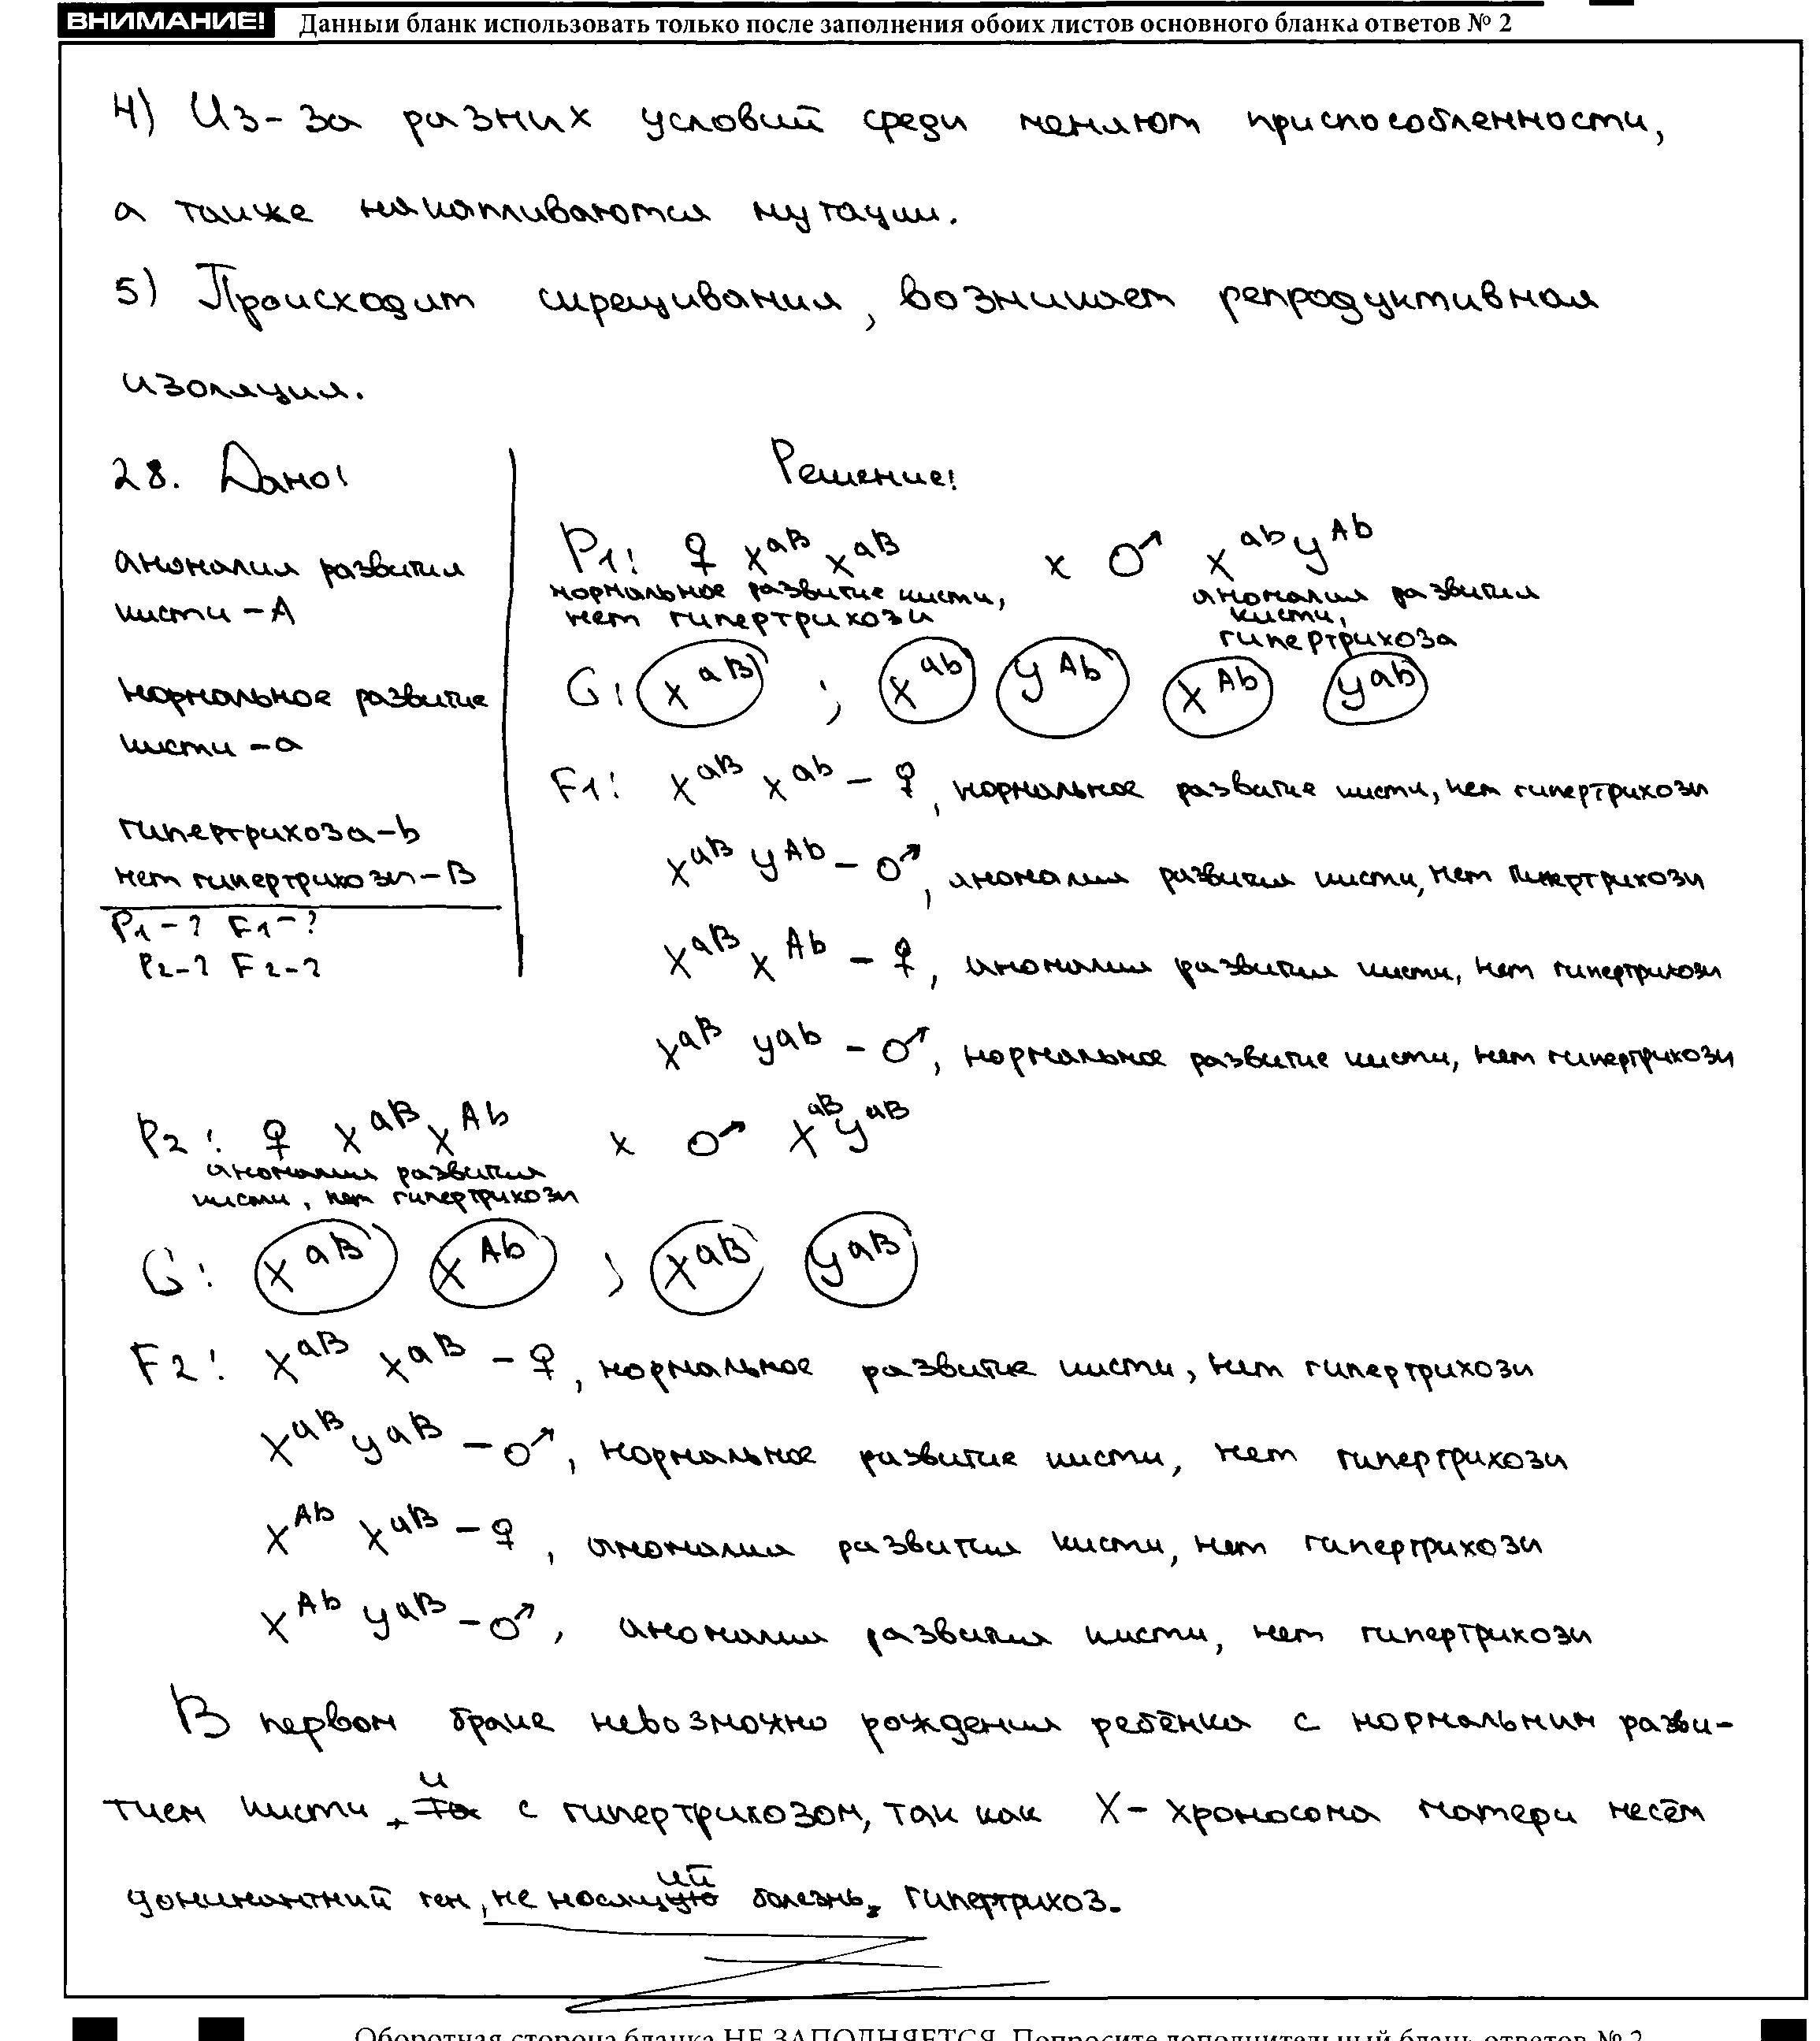 ВНИМАНИЕ! Данный бланк использовать только после заполнения обоих листов основного бланка ответов № 2
4) Из-за разних условий среди меняют приспособленности,
а также накапливаются мутации.
5) Происходит скрещивания, возникает репродуктивная
изоляция.
28. Дано: Решение:
аномалия развития
кисти - A
нормальное развитие
кисти - a
гипертрихоза - b
нет гипертрихози - B
P1 - ? F1 - ?
P2 - ? F2 - ?
P1: ♀ X^aB X^aB x ♂ X^ab Y^Ab
нормальное развитие кисти, аномалия развития
нет гипертрихози кисти,
гипертрихоза
G: X^aB ; X^ab Y^Ab X^Ab Y^ab
F1: X^aB X^ab - ♀, нормальное развитие кисти, нет гипертрихози
X^aB Y^Ab - ♂, аномалия развития кисти, нет гипертрихози
X^aB X^Ab - ♀, аномалия развития кисти, нет гипертрихози
X^aB Y^ab - ♂, нормальное развитие кисти, нет гипертрихози
P2: ♀ X^aB X^Ab x ♂ X^aB Y^aB
аномалия развития
кисти, нет гипертрихози
G: X^aB X^Ab ; X^aB Y^aB
F2: X^aB X^aB - ♀, нормальное развитие кисти, нет гипертрихози
X^aB Y^aB - ♂, нормальное развитие кисти, нет гипертрихози
X^Ab X^aB - ♀, аномалия развития кисти, нет гипертрихози
X^Ab Y^aB - ♂, аномалия развития кисти, нет гипертрихози
В первом браке невозможно рождения ребёнка с нормальним разви-
тием кисти и с гипертрихозом, так как X-хромосома матери несёт
доминантний ген, не носящий болезнь, гипертрихоз.
Оборотная сторона бланка НЕ ЗАПОЛНЯЕТСЯ. Попросите дополнительный бланк ответов № 2